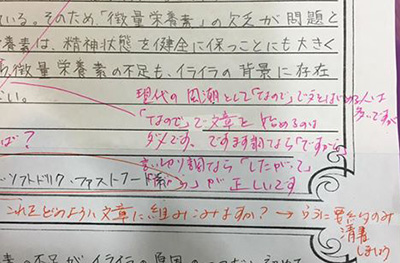 いる。そのため「微量栄養素」の欠乏が問題と
栄養素は、精神状態を健全に保つことにも大きく
微量栄養素の不足も、イライラの背景に存在
ない。
現代の風潮として「なので」で文をはじめる人は
多いですが
「なので」で文章を始めるのは
ダメです、ですます調なら「ですから」
言い切り調なら「したがって」
が正しいです
ば？
ソフトドリンク、ファストフード
これをどのように文章に組みこみますか？→
のみ
清書
しましょう
素の不足がイライラの原因の